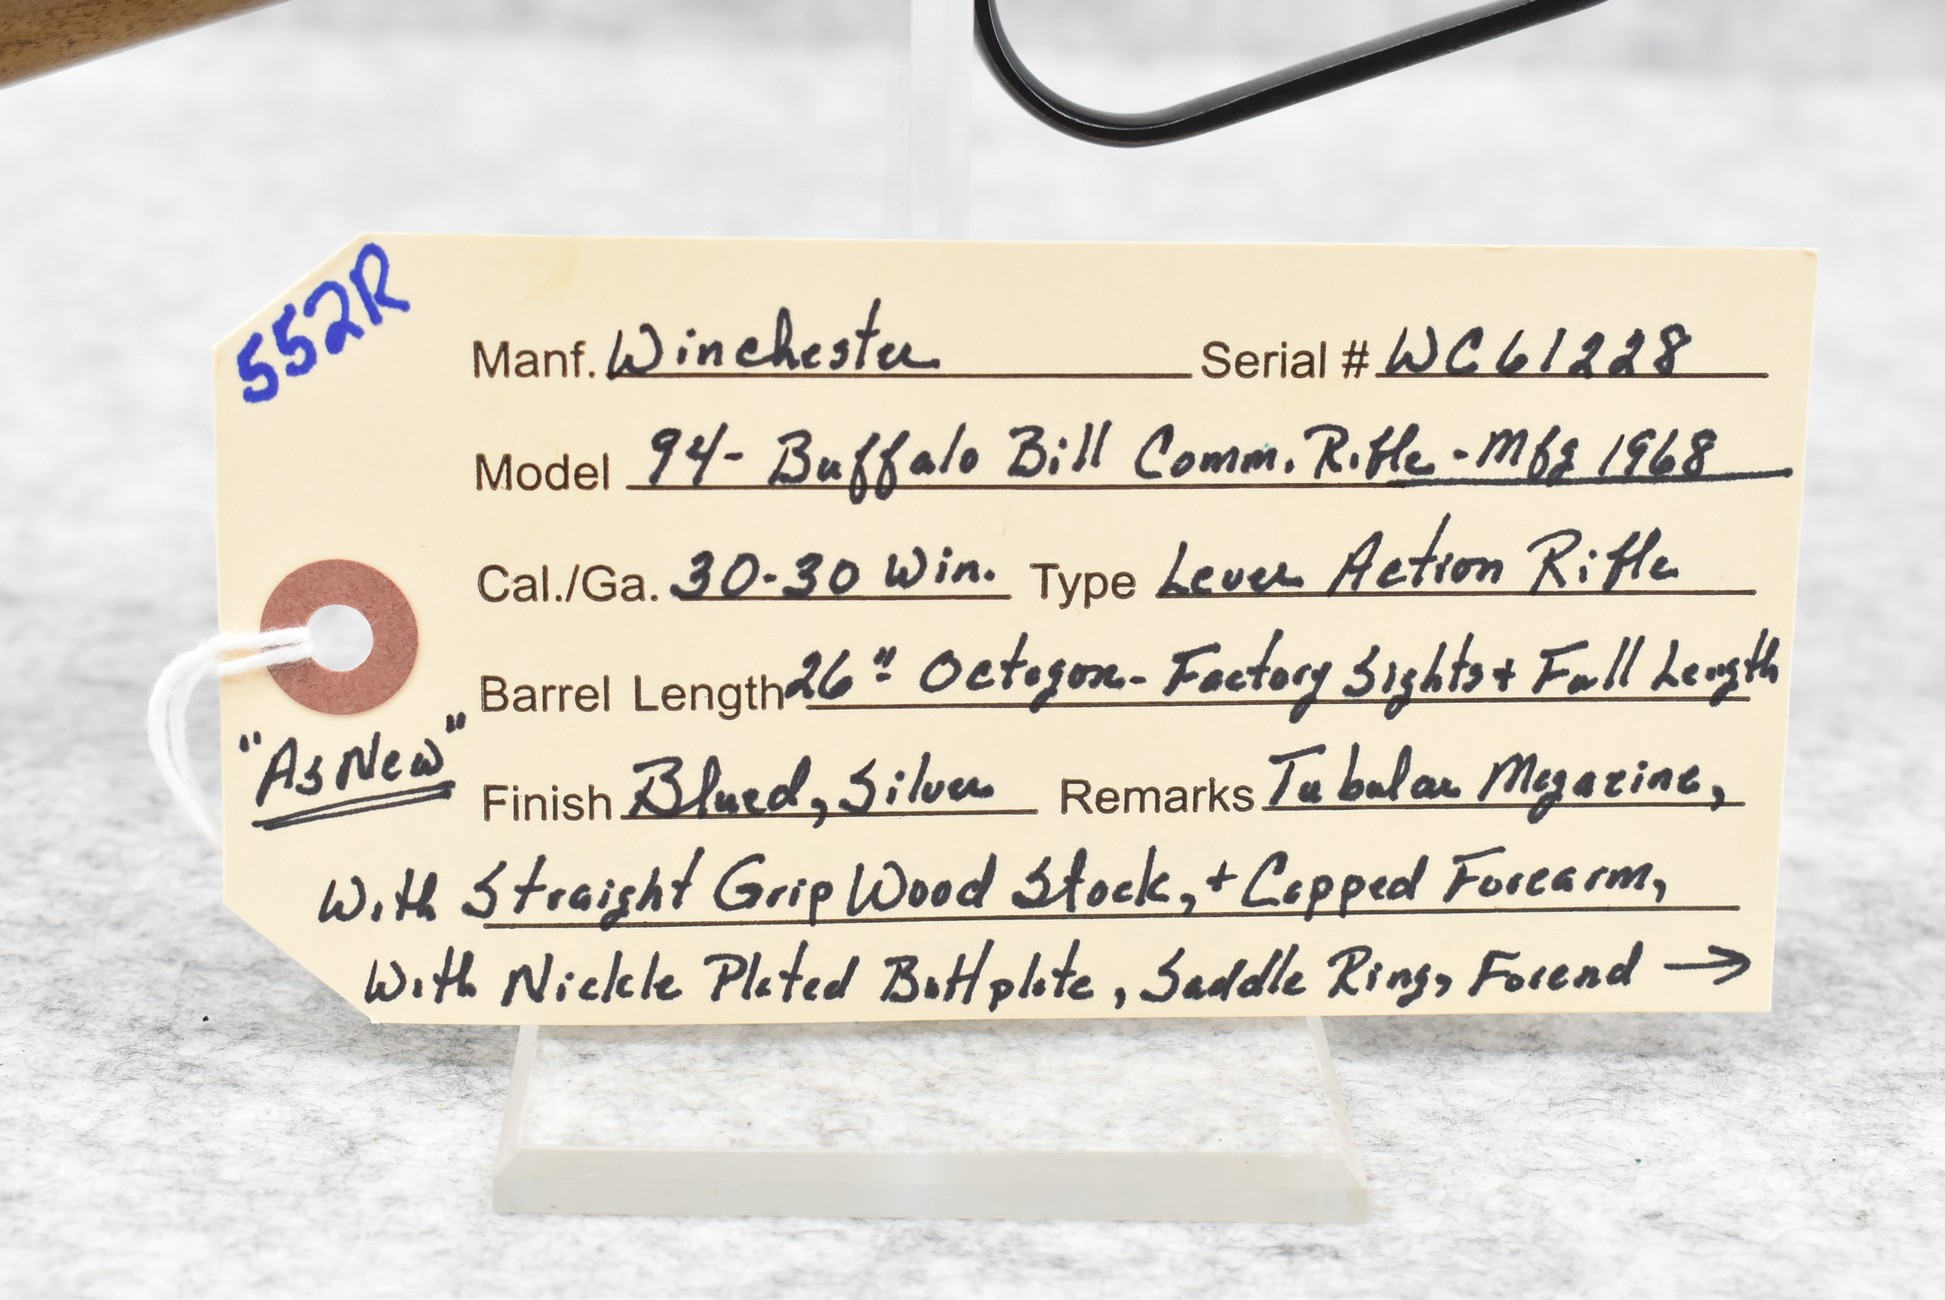 552R
Manf. Winchester Serial # WC61228
Model 94- Buffalo Bill Comm. Rifle - Mfg 1968
Cal./Ga. 30-30 Win. Type Lever Action Rifle
Barrel Length 26" Octogon - Factory Sights + Full Length
"As New"
Finish Blued, Silver Remarks Tubular Magazine,
With Straight Grip Wood Stock, + Capped Forearm,
With Nickle Plated Buttplate, Saddle Ring, Forend →